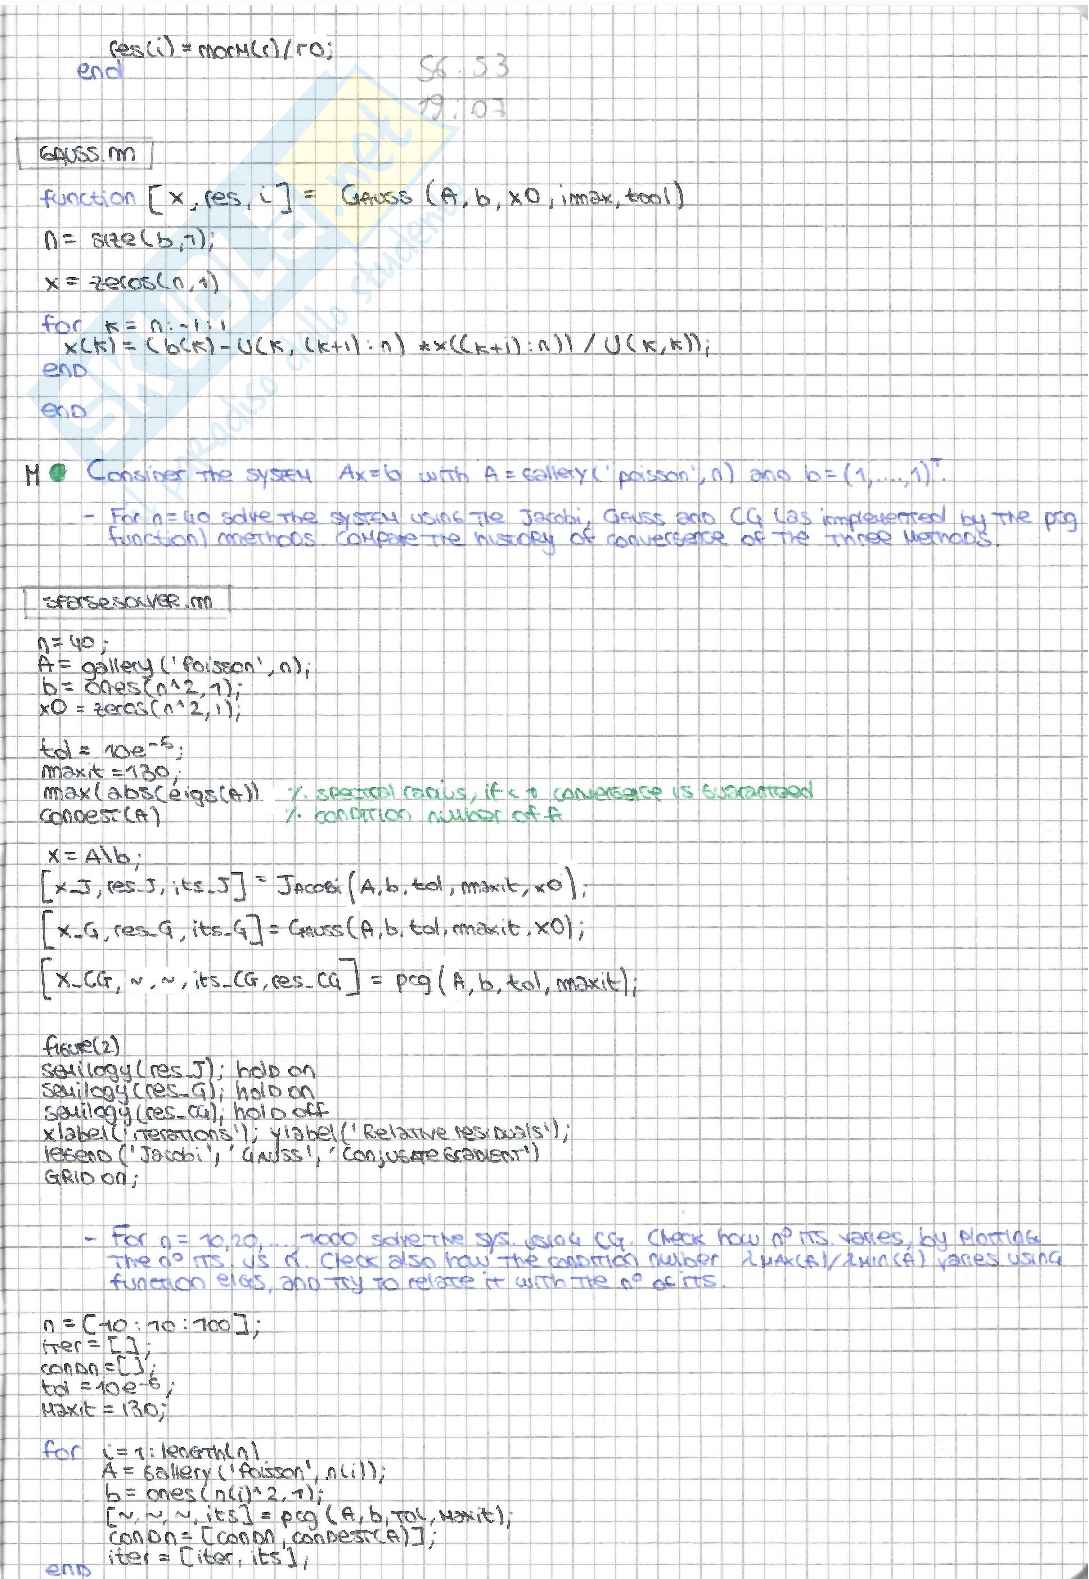 res(i) = norm(r)/r0;
end
56.53
19.07
GAUSS.m
function [x, res, i] = GAUSS (A, b, x0, imax, tool)
n = size(b,1);
x = zeros(n,1)
for k = n:-1:1
x(k) = (b(k) - U(k, (k+1):n) *x((k+1):n)) / U(k,k));
end
end
M CONSIDER THE SYSTEM Ax=b WITH A = Gallery('poisson', n) AND b = (1,...,1)ᵀ.
- For n=40 solve THE SYSTEM using THE Jacobi, Gauss AND CG (as implemented by THE pcg
function) methods. COMPARE THE history of convergence of THE Three METHODS.
sparsesolver.m
n=40;
A= gallery('Poisson', n);
b= ones(n^2,1);
x0 = zeros(n^2,1);
tol = 10e^-6;
maxit =130;
max(abs(eigs(A)) % spectral radius, if < 1 convergence is guaranteed
CONDEST(A) % CONDITION number of A
x = A\b;
[x_J, res_J, its_J] = JACOBI(A, b, tol, maxit, x0);
[x_G, res_G, its_G] = GAUSS(A, b, tol, maxit, x0);
[x_CG, ~, ~, its_CG, res_CG] = pcg(A, b, tol, maxit);
figure(2)
semilogy(res_J); hold on
semilogy(res_G); hold on
semilogy(res_CG); hold off
xlabel('iTERATIONS'); ylabel('Relative residuals');
legend('Jacobi', 'GAUSS', 'CONJUGATE GRADIENT')
GRID on;
- For n = 10,20,...1000 solve THE sys. using CG. Check how n° ITS varies, by PLOTTING
THE n° ITS. vs n. Check also how THE condition number λMAX(A)/λMIN(A) varies using
function eigs, and TRY to relate it WITH THE n° of its.
n = [10:10:100];
iTER = [];
CONDn=[];
tol =10e^-6;
Maxit =130;
for i=1:LENGTH(n)
A = Gallery('Poisson', n(i));
b = ones(n(i)^2, 1);
[~, ~, ~, its] = pcg(A, b, TOL, MAXIT);
CONDn = [CONDn, CONDEST(A)];
iter = [iter, its];
end